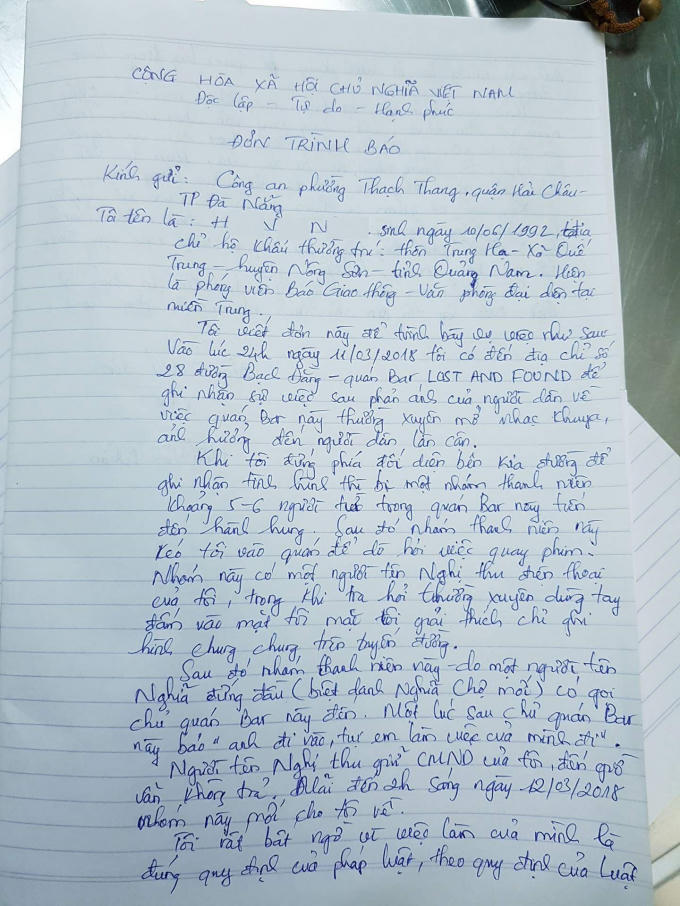 CỘNG HÒA XÃ HỘI CHỦ NGHĨA VIỆT NAM
Độc lập - Tự do - Hạnh phúc
ĐƠN TRÌNH BÁO
Kính gửi: Công an phường Thạch Thang, quận Hải Châu-
TP Đà Nẵng
Tôi tên là: H V N . sinh ngày 10/06/1992, tại địa
chỉ hộ khẩu thường trú: thôn Trung Hạ - Xã Quế
Trung - huyện Nông Sơn - tỉnh Quảng Nam. Hiện
là phóng viên Báo Giao thông - Văn phòng đại diện tại
miền Trung.
Tôi viết đơn này để trình bày sự việc như sau
Vào lúc 24h ngày 11/03/2018 tôi có đến địa chỉ số
28 đường Bạch Đằng - quán Bar LOST AND FOUND để
ghi nhận sự việc sau phản ánh của người dân về
việc quán Bar này thường xuyên mở nhạc khuya,
ảnh hưởng đến người dân lân cận.
Khi tôi đứng phía đối diện bên kia đường để
ghi nhận tình hình thì bị một nhóm thanh niên
khoảng 5-6 người từ trong quán Bar này tiến
đến hành hung. Sau đó nhóm thanh niên này
kéo tôi vào quán để dò hỏi việc quay phim.
Nhóm này có một người tên Nghị thu điện thoại
của tôi, trong khi tra hỏi thường xuyên dùng tay
đấm vào mặt tôi mặc tôi giải thích chỉ ghi
hình chung chung trên tuyến đường.
Sau đó nhóm thanh niên này do một người tên
Nghĩa đứng đầu (biệt danh Nghĩa Chợ mới) có gọi
chủ quán Bar này đến. Một lúc sau chủ quán Bar
này bảo "anh đi vào, tụi em làm việc của mình đi".
Người tên Nghị thu giữ CMND của tôi, đến giờ
vẫn không trả. Mãi đến 2h sáng ngày 12/03/2018
nhóm này mới cho tôi về.
Tôi rất bất ngờ vì việc làm của mình là
đúng quy định của pháp luật, theo quy định của Luật